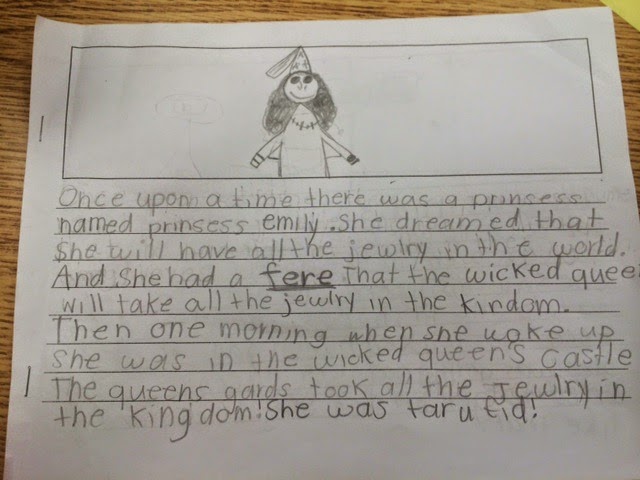 Once upon a time there was a prinsess
named prinsess emily. She dreamed that
she will have all the jewlry in the world.
And She had a fere That the wicked quee
will take all the jewlry in the kindom.
Then one morning when she woke up
She was in the wicked queen's castle
The queens gards took all the Jewlry in
the kingdom! She was tarufid!